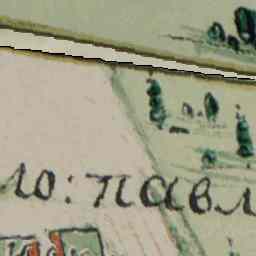 ло: павл